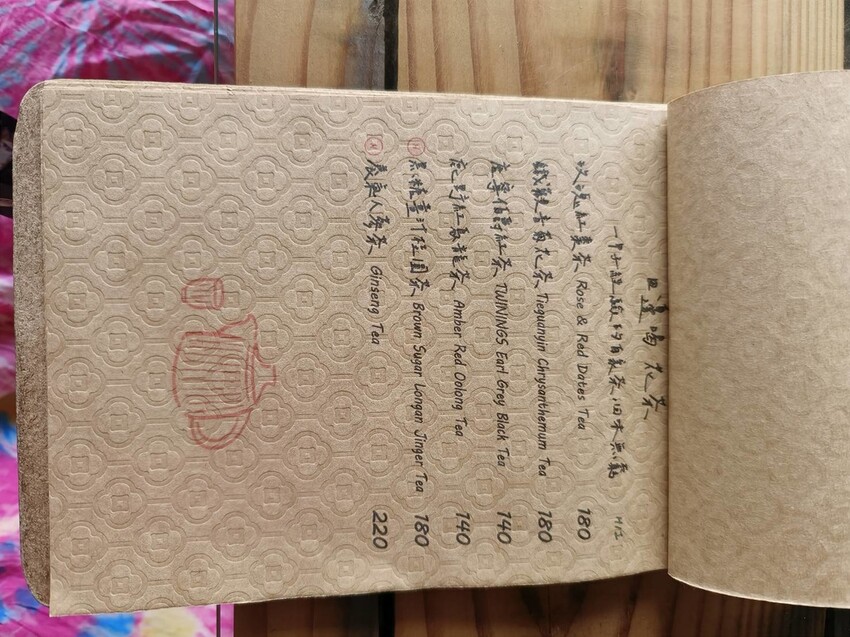 邊喝花茶
一甲子經驗的自製茶,回味無窮 H/I
玫瑰紅棗茶 Rose & Red Dates Tea 180
鐵觀音菊花茶 Tieguanyin Chrysanthemum Tea 180
唐寧伯爵紅茶 TWININGS Earl Grey Black Tea 140
鹿野紅烏龍茶 Amber Red Oolong Tea 140
H 黑糖薑汁桂圓茶 Brown Sugar Longan Jinger Tea 180
H 養氣人蔘茶 Ginseng Tea 220